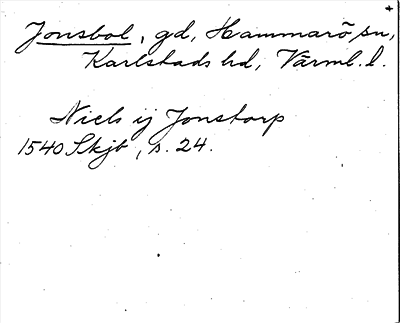 Jonsbol, gd, Hammarö sn,
Karlstads hd, Värml. l.
Niels ij Jonstorp
1540 Skjb, s. 24.